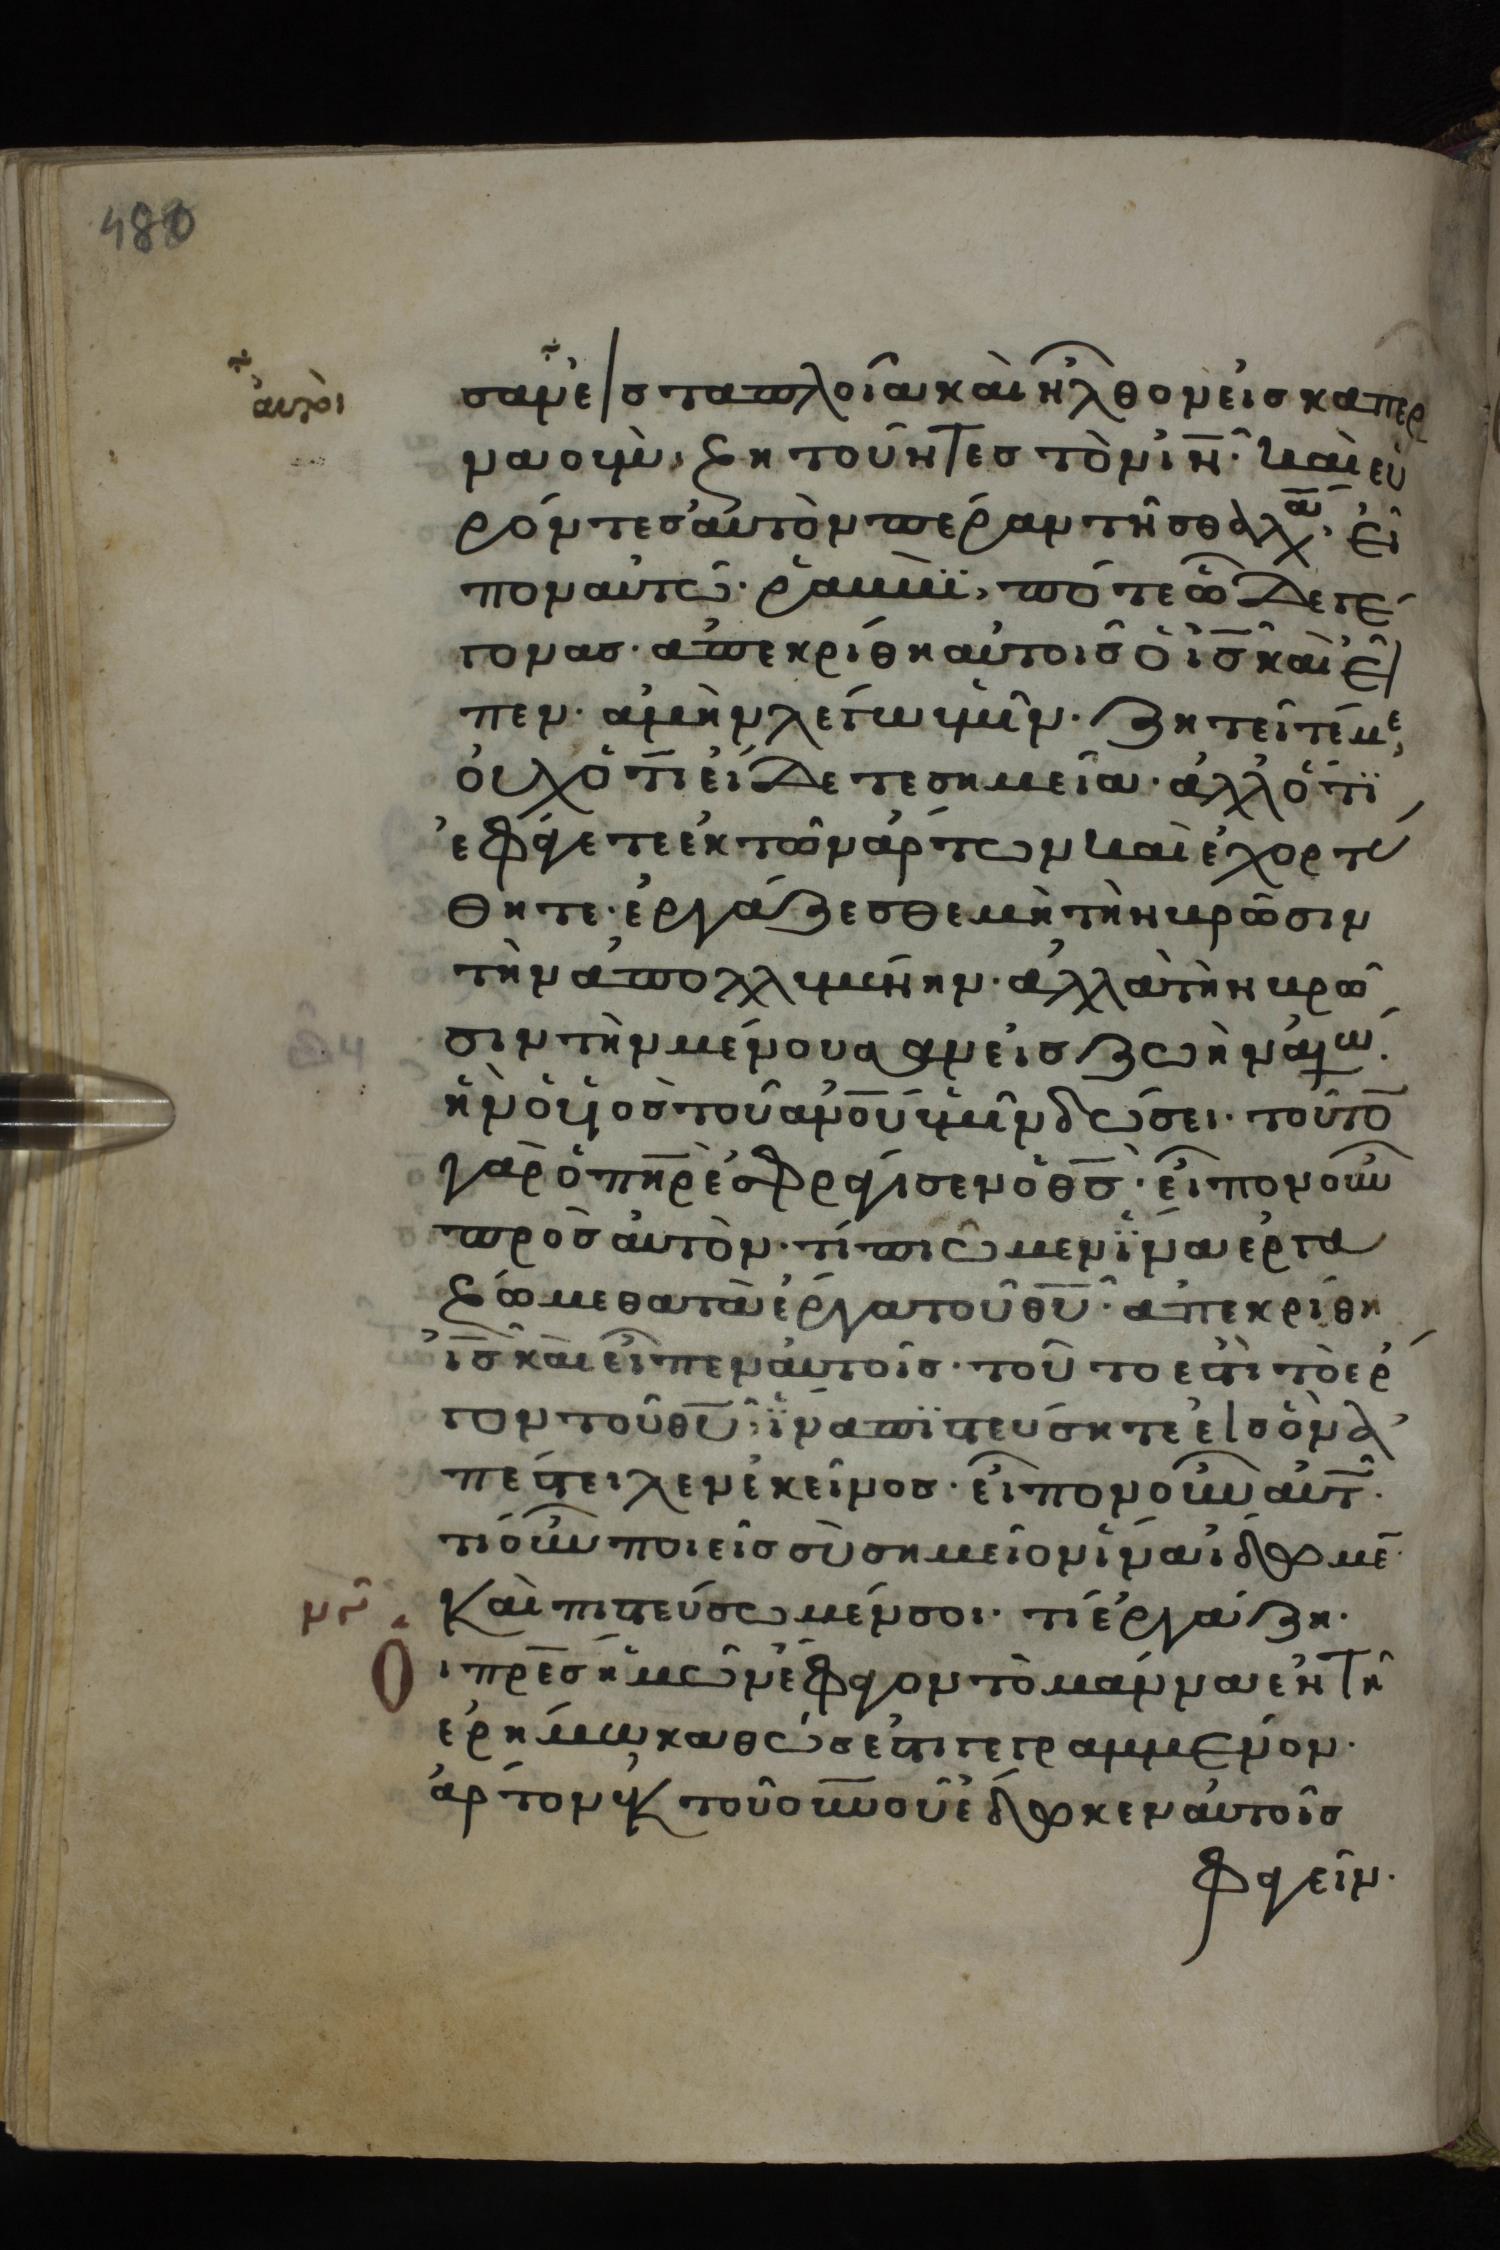 480
αὐτοὶ
σαν εἰς τὰ πλοῖα καὶ ἦλθον εἰς καπερ
ναούμ, ζητοῦντες τὸν ιν̅. καὶ εὑ
ρόντες αὐτὸν πέραν τῆς θαλασ, εἶ
πον αὐτῶ. ῥαββὶ, πότε ὧδε γέ
γονας. ἀπεκρίθη αὐτοῖς ὁ ις̅ καὶ εἶ
πεν. ἀμὴν λέγω ὑμῖν. ζητεῖτέ με,
οὐχ ὅτι εἴδετε σημεῖα. ἀλλ ὅτι
ἐφάγετε ἐκ τῶν ἄρτων καὶ ἐχορτά
θητε. ἐργάζεσθε μὴ τὴν βρῶσιν
τὴν ἀπολλυμένην. ἀλλὰ τὴν βρῶ
σιν τὴν μένουσαν εἰς ζωὴν αἰώ.
ἣν ὁ υἱὸς τοῦ ανο̅υ ὑμῖν δώσει. τοῦτο
γὰρ ὁ πη̅ρ ἐσφράγισεν ὁ θς̅. εἶπον οὖν
πρὸς αὐτὸν. τί ποιῶμεν ἵνα ἐργα
ζώμεθα τὰ ἔργα τοῦ θυ̅. ἀπεκρίθη
ις̅ καὶ εἶπεν αὐτοῖς. τοῦτο ἐστὶ τὸ ἔρ
γον τοῦ θυ̅, ἵνα πιστεύσητε εἰς ὃν ἀ
πέστειλεν ἐκεῖνος. εἶπον οὖν αὐτ.
τί οὖν ποιεῖς σὺ σημεῖον ἵνα ἴδωμε̅.
καὶ πιστεύσωμέν σοι. τί ἐργάζη.
Ὁι πρε̅ς ἡμῶν ἔφαγον τὸ μάννα ἐν τῆ
ἐρήμω καθώς ἐστι γεγραμμένον.
ἄρτον ἐκ τοῦ ου̅νου ἔδωκεν αὐτοῖς
φαγεῖν.